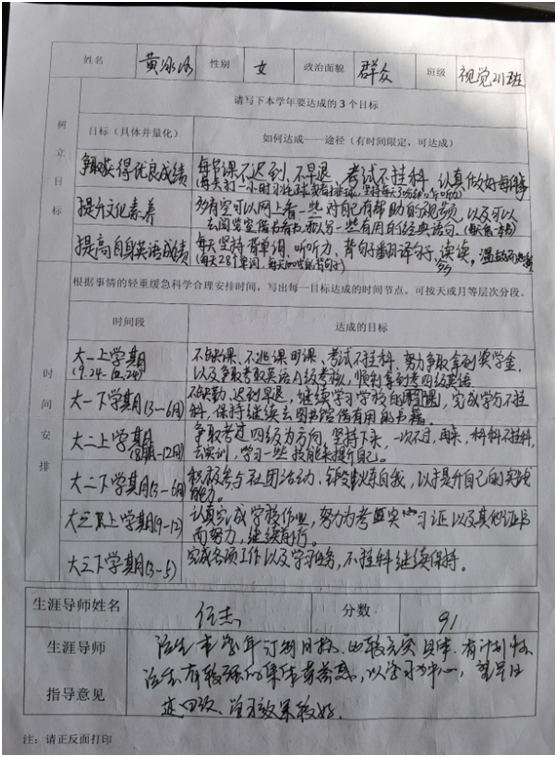 姓名 黄泳洛 性别 女 政治面貌 群众 班级 视觉211班
请写下本学年要达成的3个目标
树立目标
目标（具体并量化） 如何达成——途径（有时间限定，可达成）
争取获得优良成绩 每节课不迟到、不早退、考试不挂科、认真做好每件事
提升文化素养 多有空可以网上看一些对自己有帮助的视频，以及可以
去图书馆借书看书
提高自身英语成绩 每天坚持背单词、听听力、背句子翻译句子、读读，
根据事情的轻重缓急科学合理安排时间，写出每一目标达成的时间节点。可按天或月等层次分段。
时间安排
时间段 达成的目标
大一上学期 不缺课、不逃课旷课、考试不挂科、努力争取拿到奖学金，
(9.24-12.24) 以及争取考取英语A级考核，顺利拿到考四级英语
大一下学期(3-6月) 不缺勤、迟到早退，继续学习学校的课程，完成学分不挂
科，保持继续去图书馆借有用的书籍。
大二上学期 争取考过四级为方向，坚持下来，一次不过，再来，科科不挂科，
去实训，学习一些技能来提升自己。
大二下学期(3-6月) 积极参与社团活动、锻炼自我，以求提升自己的实践
能力。
大三上学期(9-12) 认真完成学校作业，努力为考 实习证以及其他证书
而努力，继续前行。
大三下学期(3-5) 完成各项工作以及学习任务，不挂科继续保持。
生涯导师姓名 任杰 分数 91
生涯导师指导意见
该生本学年订的目标，比较充实具体，有计划性
该生有较强的集体荣誉感，以学习为中心，望早日
过四级、学习效果较好。
注：请正反面打印